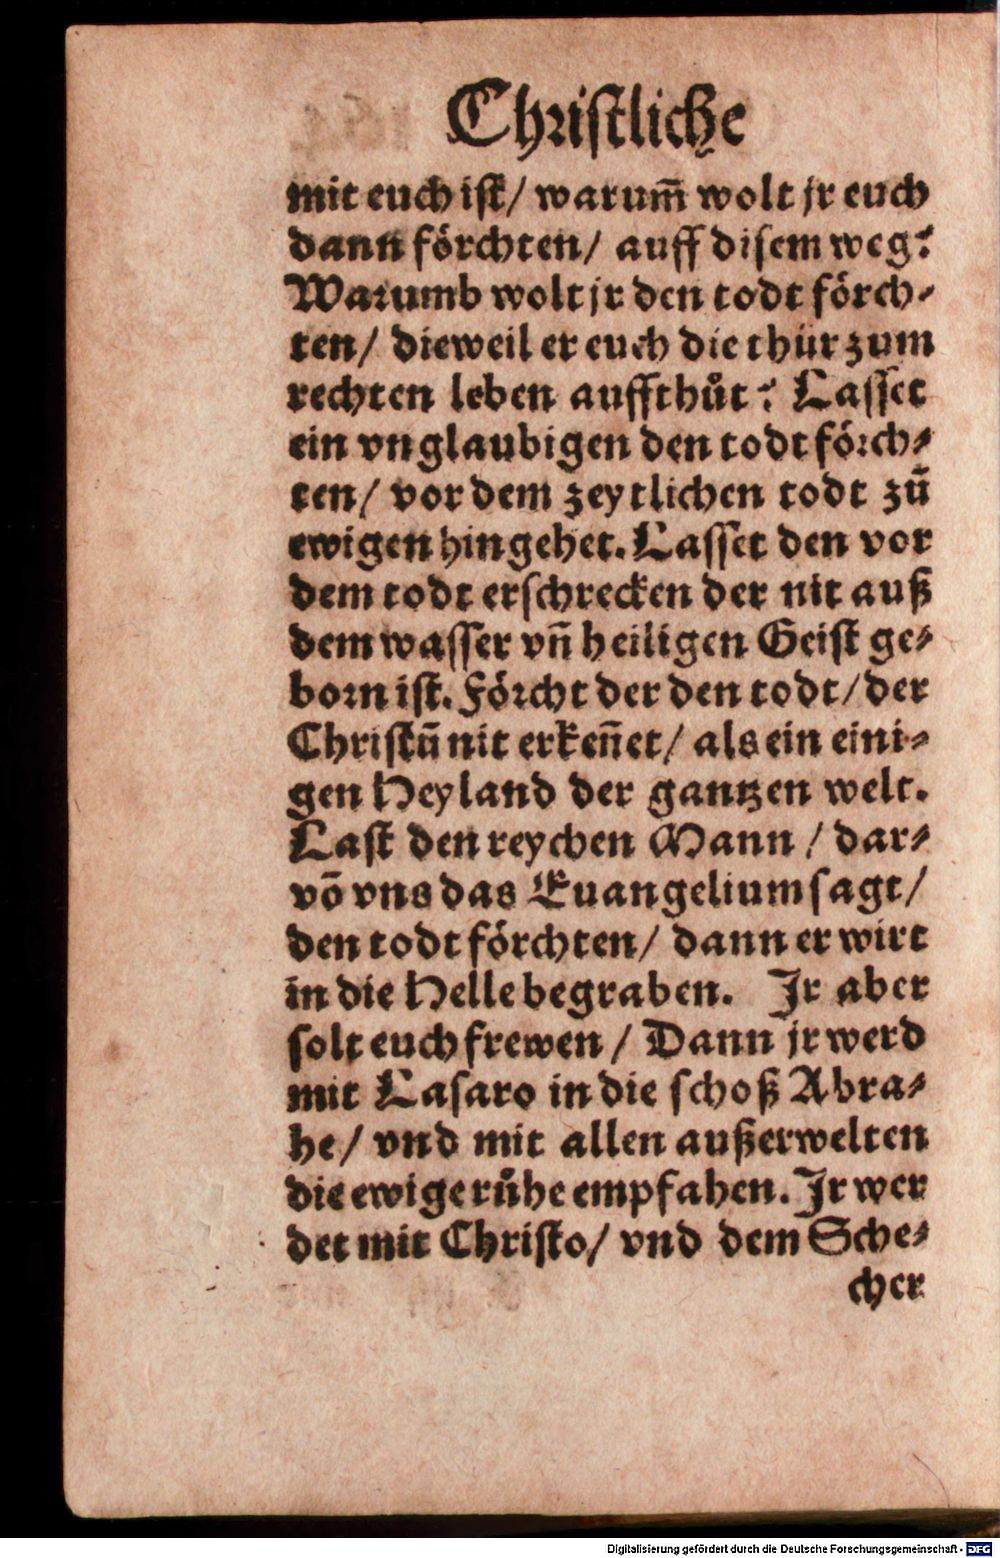 Christliche
mit euch ist/ warum̃ wolt jr euch
dann förchten/ auff disem weg?
Warumb wolt jr den todt förch-
ten/ dieweil er euch die thür zum
rechten leben auffthůt? Lasset
ein vnglaubigen den todt förch-
ten/ vor dem zeytlichen todt zũ
ewigen hingehet. Lasset den vor
dem todt erschrecken der nit auß
dem wasser vñ heiligen Geist ge-
born ist. Förcht der den todt/ der
Christũ nit erkeñet/ als ein eini-
gen Heyland der gantzen welt.
Last den reychen Mann / dar-
võ vns das Euangelium sagt/
den todt förchten/ dann er wirt
in die Helle begraben. Jr aber
solt euch frewen / Dann jr werd
mit Lasaro in die schoß Abra-
he/ vnd mit allen außerwelten
die ewige růhe empfahen. Jr wer
det mit Christo/ vnd dem Sche-
cher
Digitalisierung gefördert durch die Deutsche Forschungsgemeinschaft - DFG